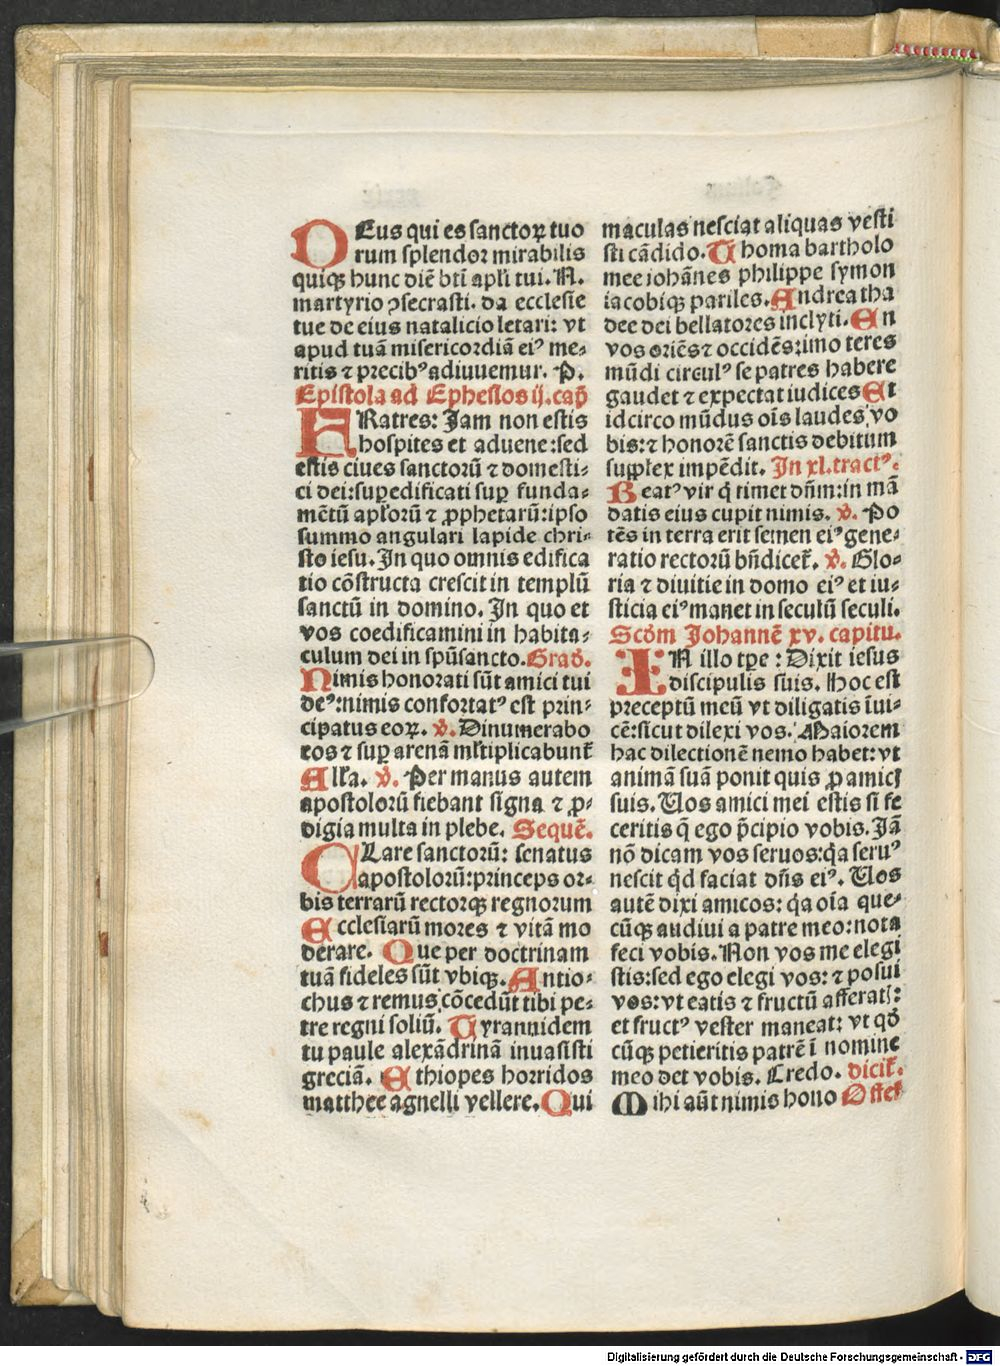 DEus qui es sanctoꝝ tuo
rum splendor mirabilis
quiqꝫ hunc diē btī apli tui. N.
martyrio ꝯsecrasti. da ecclesie
tue de eius natalicio letari: vt
apud tuā misericordiā eiꝰ me⸗
ritis ⁊ precibꝰ adiuuemur. P.
Epistola ad Ephesios ij. cap̄
FRatres: Jam non estis
hospites et aduene: sed
estis ciues sanctorū ⁊ domesti⸗
ci dei: suꝑedificati suꝑ funda⸗
mētū aplorū ⁊ ꝓphetarū: ipso
summo angulari lapide chri⸗
sto iesu. In quo omnis edifica
tio cōstructa crescit in templū
sanctū in domino. In quo et
vos coedificamini in habita⸗
culum dei in spūsancto. Grad.
Nimis honorati sūt amici tui
deꝰ: nimis confortatꝰ est prin⸗
cipatus eoꝝ. ꝟ. Dinumerabo
eos ⁊ suꝑ arenā mltiplicabunt̄
Alla. ꝟ. Per manus autem
apostolorū fiebant signa ⁊ ꝓ⸗
digia multa in plebe. Sequē.
CLare sanctorū: senatus
apostolorū: princeps or⸗
bis terrarū rectorqꝫ regnorum
Ecclesiarū mores ⁊ vitā mo
derare. Que per doctrinam
tuā fideles sūt vbiqꝫ. Antio⸗
chus ⁊ remus cōcedūt tibi pe⸗
tre regni soliū. Tyrannidem
tu paule alexādrinā inuasisti
greciā. Ethiopes horridos
matthee agnelli vellere. Qui
maculas nesciat aliquas vesti
sti cādido. Thoma bartholo
mee iohānes philippe symon
iacobiqꝫ pariles. Andrea tha
dee dei bellatores inclyti. En
vos oriēs ⁊ occidēs: imo teres
mūdi circulꝰ se patres habere
gaudet ⁊ expectat iudices Et
idcirco mūdus oīs laudes vo
bis: ⁊ honorē sanctis debitum
supplex impēdit. In xl. tractꝰ.
Beatꝰ vir q̄ timet dn̄m: in mā
datis eius cupit nimis. ꝟ. Po
tēs in terra erit semen eiꝰ gene⸗
ratio rectorū bn̄dicet̄. ꝟ. Glo⸗
ria ⁊ diuitie in domo eiꝰ et iu⸗
sticia eiꝰ manet in seculū seculi.
Scd̄m Johannē xv. capitu.
IN illo tꝑe: Dixit iesus
discipulis suis. Hoc est
preceptū meū vt diligatis īui⸗
cē: sicut dilexi vos. Maiorem
hac dilectionē nemo habet: vt
animā suā ponit quis ꝓ amicꝭ
suis. Vos amici mei estis si fe
ceritis q̄ ego p̄cipio vobis. Jā
nō dicam vos seruos: q̄a seruꝰ
nescit qd̄ faciat dn̄s eiꝰ. Vos
autē dixi amicos: q̄a oīa que⸗
cūqꝫ audiui a patre meo: nota
feci vobis. Non vos me elegi
stis: sed ego elegi vos: ⁊ posui
vos: vt eatis ⁊ fructū afferatꝭ:
et fructꝰ vester maneat: vt qd̄
cūqꝫ petieritis patrē ī nomine
meo det vobis. Credo. dicit̄.
Mihi aūt nimis hono Offer̄
Digitalisierung gefördert durch die Deutsche Forschungsgemeinschaft - DFG